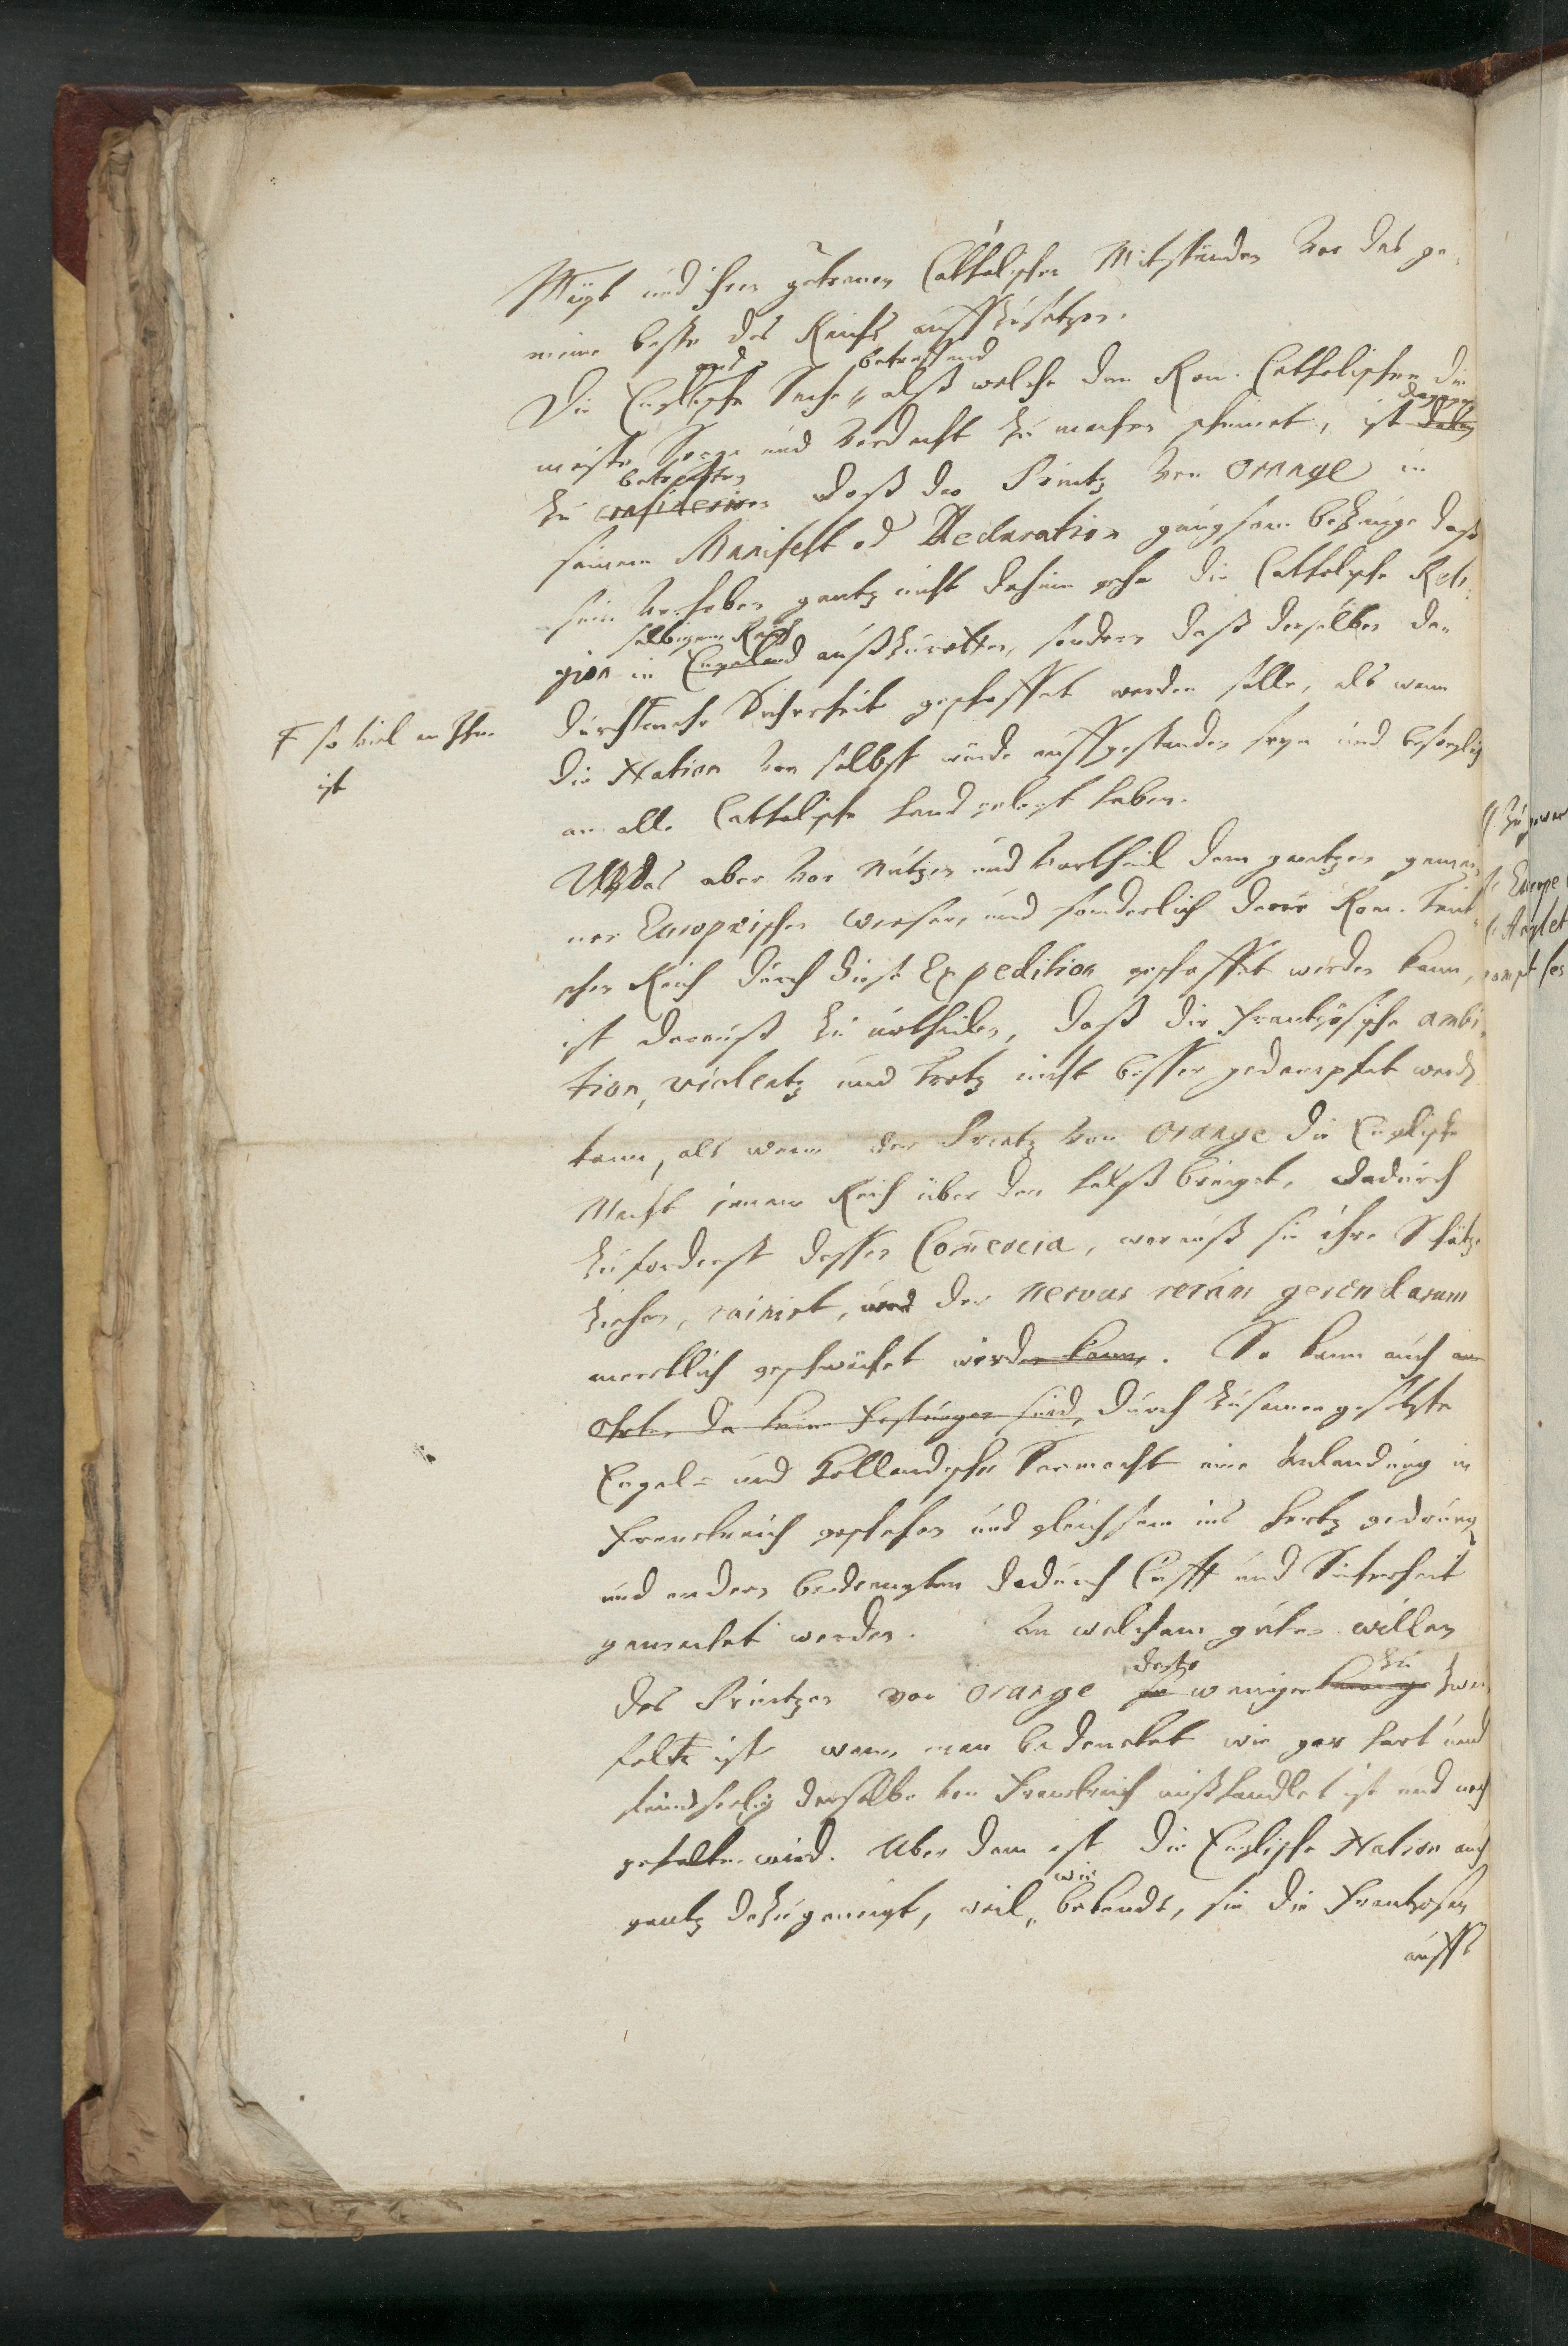 Mayt und ihren getreuen Catholischen Mitständen vor das ge,
meine beste des Reichs auffzusetzen.
und betreffend
Die Englische Sache, alß welche den Rom. Catholischen die
dagegen
meiste Sorge und Verdacht zu machen scheinet, ist dabey
betrachten
zu consideriren daß der Printz von Orange in
seinem Manifest od Declaration gnugsam bezeuge daß
sein Vorhaben gantz nicht dahin gehe die Catholische Reli,
selbigem Reich
gion in Engeland außzurotten, sondern daß derselben da,
F so viel an Ihm
ist
durch F mehr Sicherheit geschaffet werden solle, als wann
die Nation von selbst würde auffgestanden seyn und besorglich
an alle Catholische hand gelegt haben.
Was aber vor Nutzen und Vortheil dem gantzen gemei,
nen Europeischen Weesen, und sonderlich dem Rom. Teut,
schen Reich durch diese Expedition geschaffet werden kann,
ist darauß zu urtheilen, daß die Frantzösische ambi,
tion, violentz und Trotz nicht besser gedempfet werden
kann, als wann der Printz von Orange die Englische
Macht jenem Reich über den halß bringet, dadurch
zuforderst dessen Commercia, worauß sie ihre Schätze
ziehen, ruinirt, und der nervus rerum gerendarum
mercklich geschwächet werden kann. So kann auch an
Orten da keine Festungen sind, durch zusamengesetzte
Engel- und Holländische Seemacht eine Anlandung in
Franckreich geschehen und gleichsam ins hertz gedrungen
und andern bedrengten dadurch Lufft und Sicherheit
gemachet werden. An welchem guten willen
desto zu
des Printzen von Orange so weniger zwei
feln ist wann man bedencket wie gar hart und
feindseelig derselbe von Franckreich mißhandlet ist und noch
gehalten wird. Über dem ist die Englische Nation auch
wie
gantz dazu geneigt, weil, bekandt, sie die Frantzosen
auffs